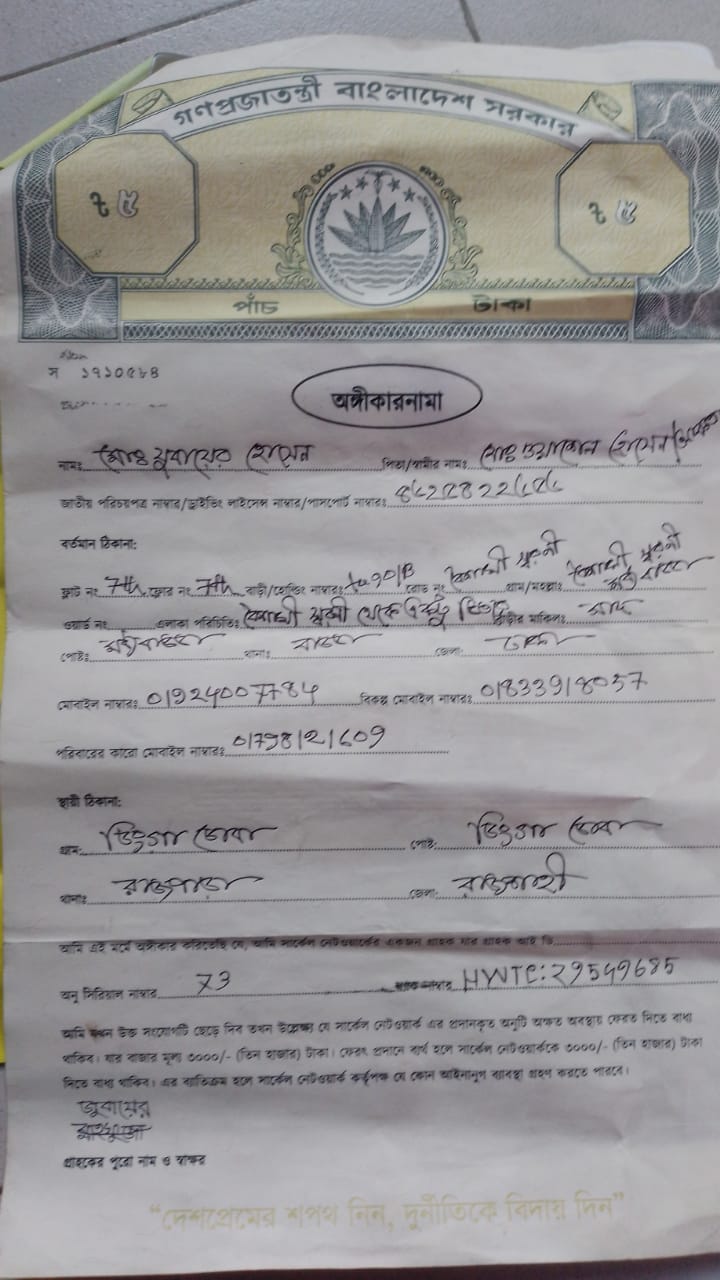 গণপ্রজাতন্ত্রী বাংলাদেশ সরকার
৳ ৫ ৳ ৫
পাঁচ টাকা
স ১৭১০৫৮৪
অঙ্গীকারনামা
নামঃ মোঃ যুবায়ের হোসেন পিতা/স্বামীর নামঃ মোঃ হোসেন
জাতীয় পরিচয়পত্র নাম্বার/ড্রাইভিং লাইসেন্স নাম্বার/পাসপোর্ট নাম্বারঃ
বর্তমান ঠিকানা:
ফ্লাট নং 7th ফ্লোর নং 7th বাড়ী/হোল্ডিং নাম্বারঃ রোড নং বৈশাখী স্মরনী গ্রাম/মহল্লাঃ বৈশাখী স্মরনী
ওয়ার্ড নং এলাকা পরিচিতিঃ বৈশাখী থেকে একটু ভিতরে বাড়ির মালিকঃ
পোষ্টঃ মধ্যবাড্ডা থানাঃ বাড্ডা জেলাঃ ঢাকা
মোবাইল নাম্বারঃ 01924007784 বিকল্প মোবাইল নাম্বারঃ 01833918057
পরিবারের কারো মোবাইল নাম্বারঃ 01798121609
স্থায়ী ঠিকানা:
গ্রাম: ডিংগা ডোবা পোষ্ট: ডিংগা ডোবা
থানাঃ রাজপাড়া জেলাঃ রাজশাহী
আমি এই মর্মে অঙ্গীকার করিতেছি যে, আমি সার্কেল নেটওয়ার্কের একজন গ্রাহক যার গ্রাহক আই ডি
অনু সিরিয়াল নাম্বার 73 HWTC:29549685
আমি যখন উক্ত সংযোগটি ছেড়ে দিব তখন উল্লেক্ষ্য যে সার্কেল নেটওয়ার্ক এর প্রদানকৃত অনুটি অক্ষত অবস্থায় ফেরত দিতে বাধ্য
থাকিব। যার বাজার মূল্য ৩০০০/- (তিন হাজার) টাকা। ফেরৎ প্রদানে ব্যর্থ হলে সার্কেল নেটওয়ার্ককে ৩০০০/- (তিন হাজার) টাকা
দিতে বাধ্য থাকিব। এর ব্যতিক্রম হলে সার্কেল নেটওয়ার্ক কর্তৃপক্ষ যে কোন আইনানুগ ব্যবস্থা গ্রহণ করতে পারবে।
জুবায়ের
গ্রাহকের পুরো নাম ও স্বাক্ষর
"দেশপ্রেমের শপথ নিন, দুর্নীতিকে বিদায় দিন"